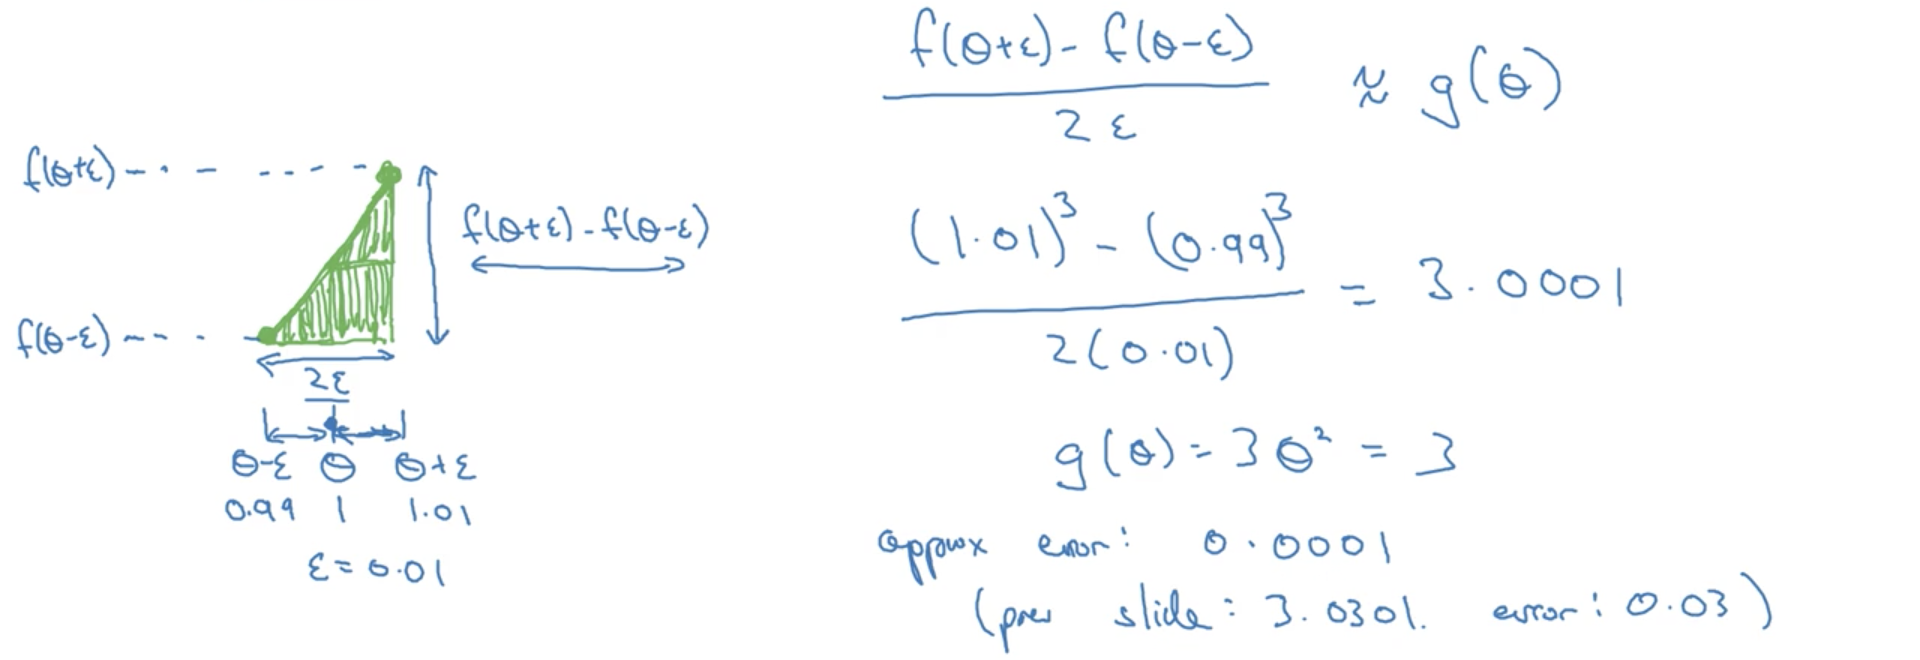 f(θ+ε)
f(θ-ε)
f(θ+ε) - f(θ-ε)
2ε
θ-ε θ θ+ε
0.99 1 1.01
ε = 0.01
f(θ+ε) - f(θ-ε)
2ε
≈ g(θ)
(1.01)³ - (0.99)³
2(0.01)
= 3.0001
g(θ) = 3θ² = 3
approx error: 0.0001
(prev slide: 3.0301. error: 0.03)